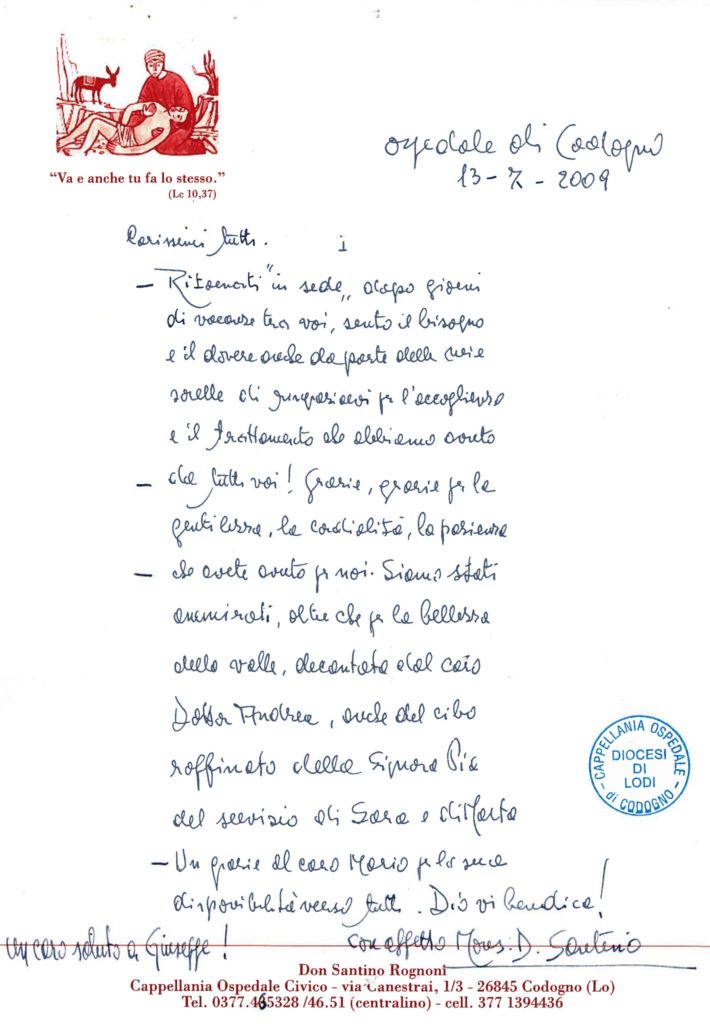 "Va e anche tu fa lo stesso."
(Lc 10,37)
Ospedale di Codogno
13-7-2009
Carissimi tutti.
– Ritornati "in sede" dopo giorni
di vacanze tra voi, sento il bisogno
e il dovere anche da parte delle mie
sorelle di ringraziarvi per l'accoglienza
e il trattamento che abbiamo avuto
– da tutti voi! Grazie, grazie per la
gentilezza, la cordialità, la pazienza
– che avete avuto per noi. Siamo stati
ammirati, oltre che per la bellezza
della valle, decantata dal caro
Dottor Andrea, anche del cibo
raffinato della Signora Pia
del servizio di Sara e di Marta
– Un grazie al caro Mario per la sua
disponibilità verso tutti. Dio vi benedica!
un caro saluto a Giuseppe!
con affetto Mons. D. Santino
CAPPELLANIA OSPEDALE
DIOCESI
DI
LODI
di CODOGNO
Don Santino Rognoni
Cappellania Ospedale Civico - via Canestrai, 1/3 - 26845 Codogno (Lo)
Tel. 0377.465328 /46.51 (centralino) - cell. 377 1394436